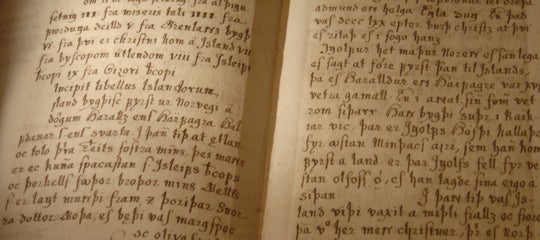 setniŋ III fra miseris tali IIII fra
fiorðunga deilld V fra Grenlanz bygþ
VI fra þvi er christni kom a Island VII
fra byscopom utlendom VIII fra Isleipi
bcopi IX fra Gizori bcopi
Incipit libellus Islandorum,
Island bygþisc fyrst ur Norvegi a
dogum Haralz ens Harfagra Hal
fdanar s ens svarta. I þan tiþ at ætlan
oc tolo þra Teits fostra mins, þes manz
er ec kuna spacastan s. Isleifs bcops
oc Þorkells foþor broþor mins Gellis
s er langt munþi fram, & Þoriþar Snor
ra dottor Goþa, es bæþi vas margspoc
admund eri helga.
vas dccc lxx epter burþ christz at þvi
es ritaþ es i sogo hans
Ingolfur het maþur Norenn es sanlega
es sagt at føre fyrst þan til Islands,
þa es Haralldur en Harfagre var xvi
vetra gamall En i anat sin fom vet
rom siþarr. Han bygþi suþr i Reik
iar vic. þar er Ingolfs Hofþi kallaþr
fyr østan Minþacs airi, sem han kom
fyrst a land. en þar Ingolfs fell fyr ve
stan olfoss ó, es han lagþe sina eigo a
siþan. I þan tiþ vas Is-
land viþi vaxit a miþli fiallz oc fioro
þa vo her menn christner, þr es Norþ